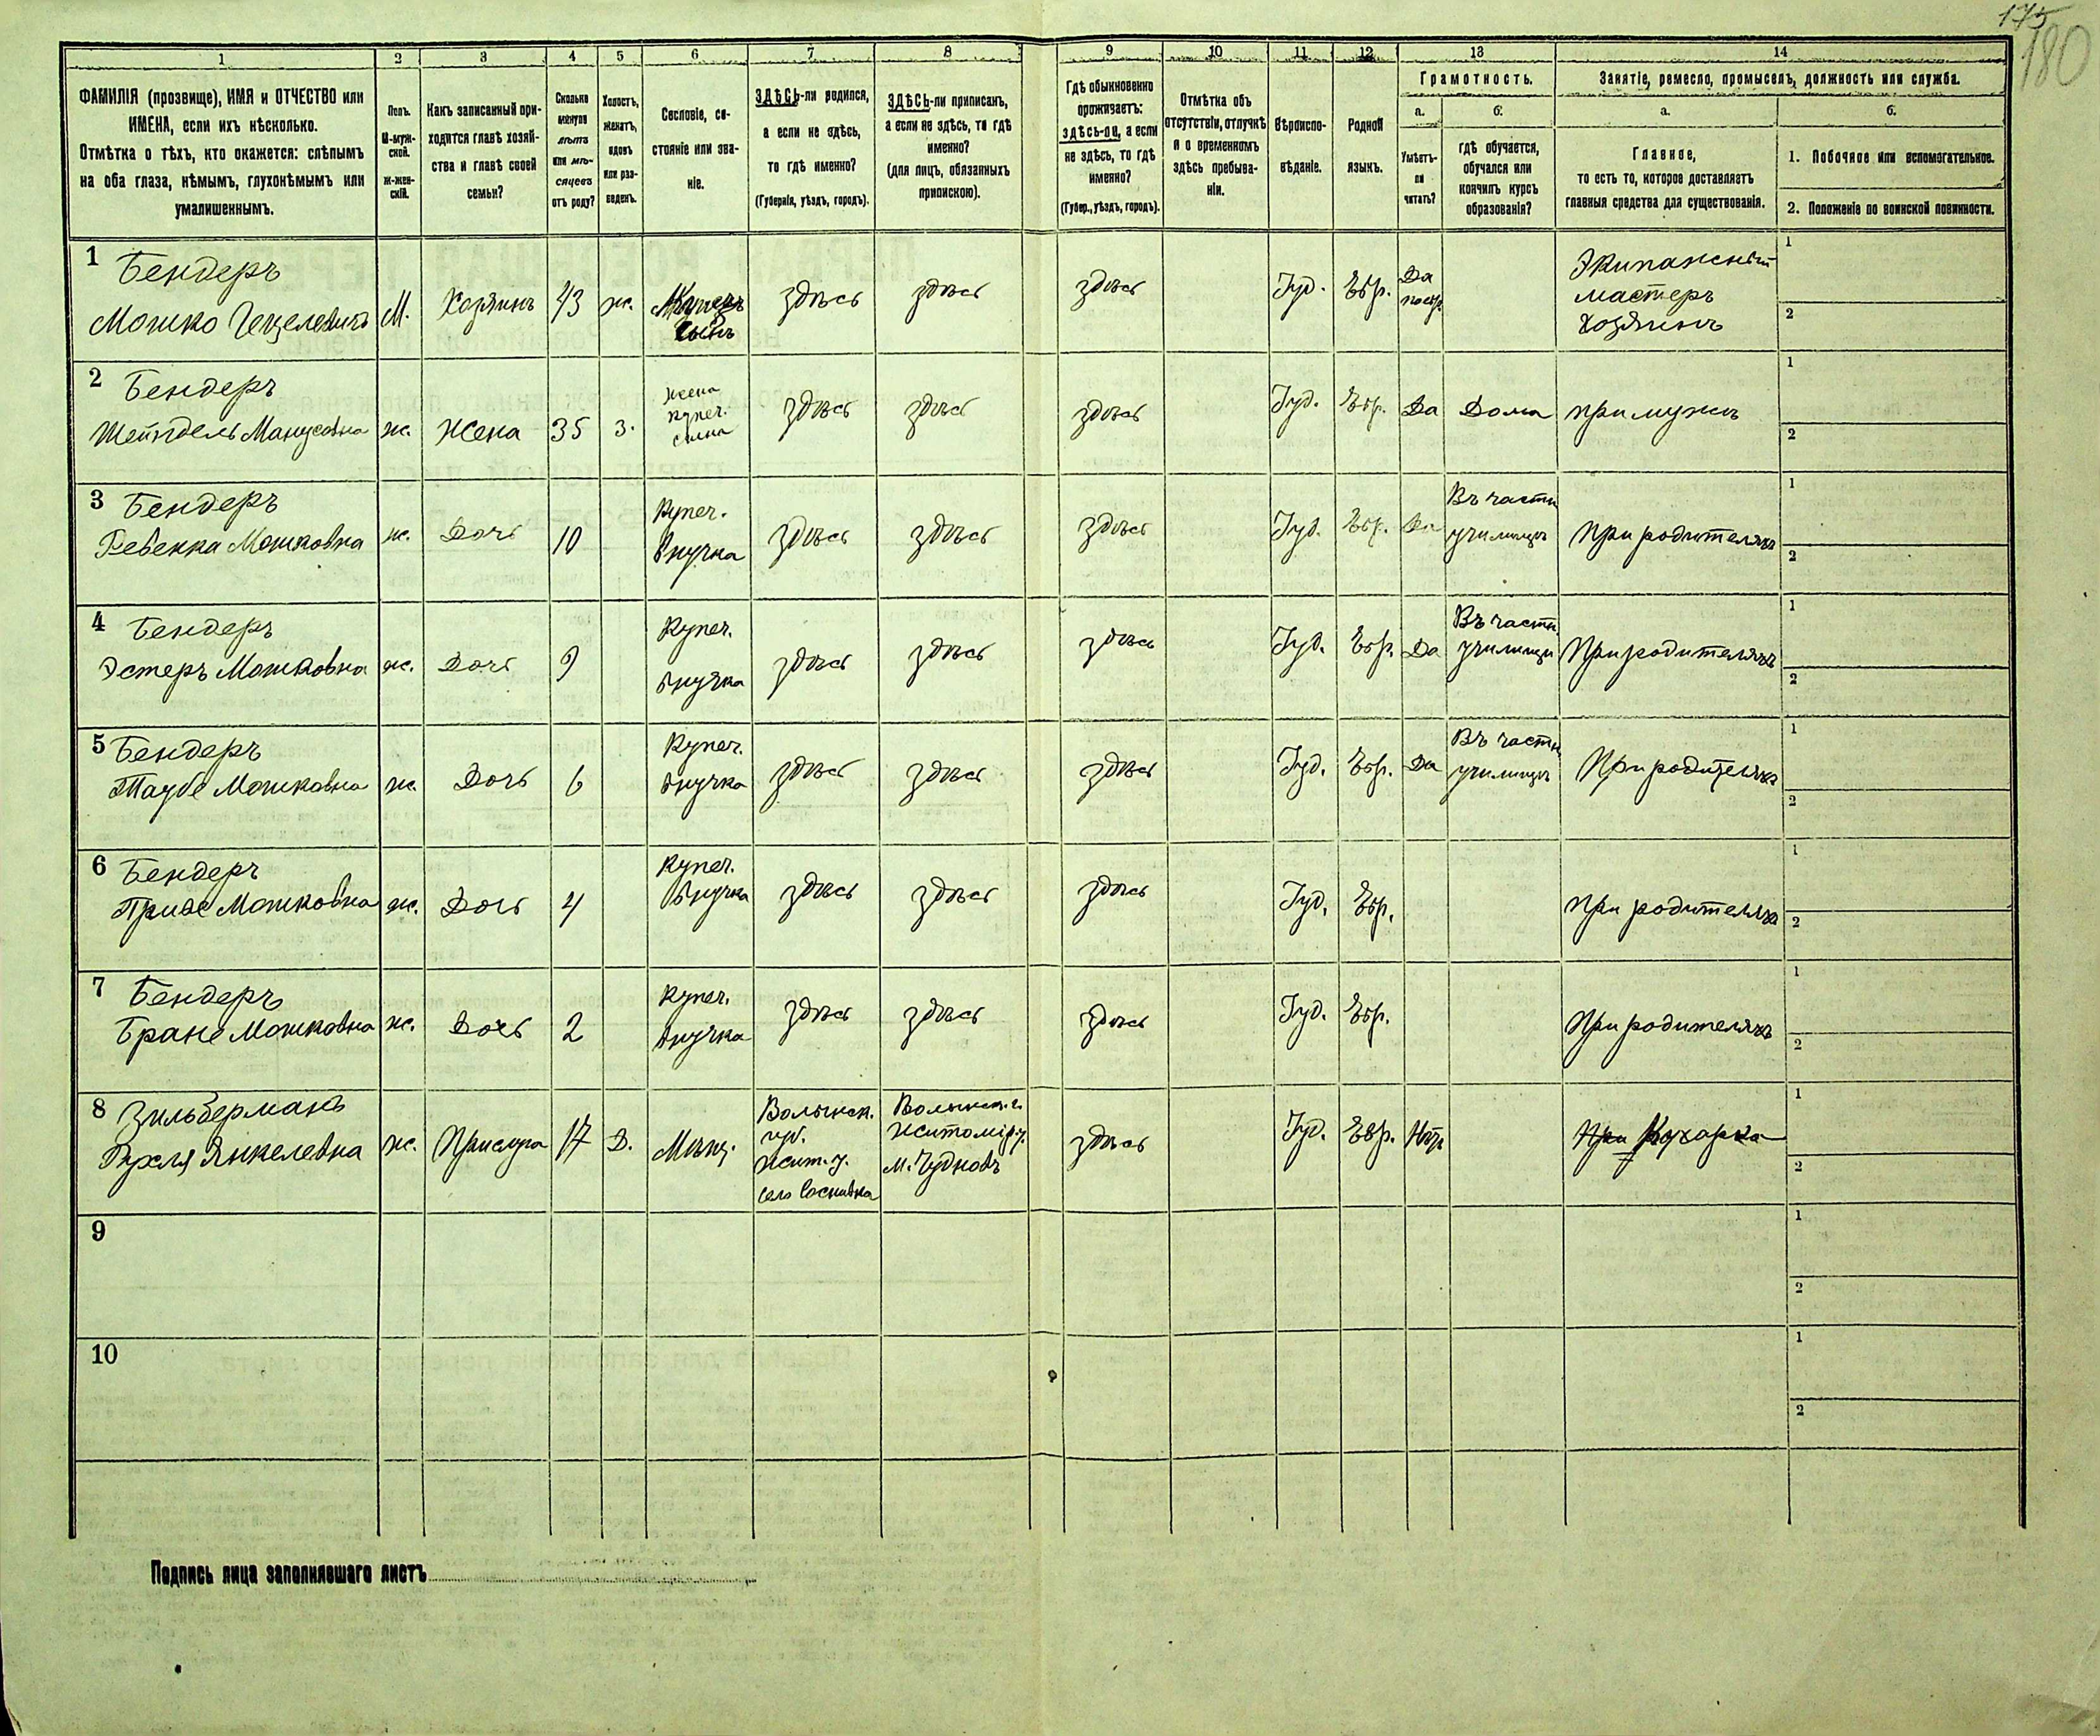 175
180
1 2 3 4 5 6 7 8 9 10 11 12 13 14
ФАМИЛІЯ (прозвище), ИМЯ и ОТЧЕСТВО или
ИМЕНА, если ихъ нѣсколько.
Отмѣтка о тѣхъ, кто окажется: слѣпымъ
на оба глаза, нѣмымъ, глухонѣмымъ или
умалишеннымъ.
Полъ.
М-муж-
ской.
Ж-жен-
скій.
Какъ записанный при-
ходится главѣ хозяй-
ства и главѣ своей
семьи?
Сколько
минуло
лѣтъ
или мѣ-
сяцевъ
отъ роду?
Холостъ,
женатъ,
вдовъ
или раз-
веденъ.
Сословіе, со-
стояніе или зва-
ніе.
ЗДѢСЬ-ли родился,
а если не здѣсь,
то гдѣ именно?
(Губернія, уѣздъ, городъ).
ЗДѢСЬ-ли приписанъ,
а если не здѣсь, то гдѣ
именно?
(для лицъ, обязанныхъ
припискою).
Гдѣ обыкновенно
проживаетъ:
здѣсь-ли, а если
не здѣсь, то гдѣ
именно?
(Губер., уѣздъ, городъ).
Отмѣтка объ
отсутствіи, отлучкѣ
и о временномъ
здѣсь пребыва-
ніи.
Вѣроиспо-
вѣданіе.
Родной
языкъ.
Грамотность.
а.
Умѣетъ-
ли
читать?
б.
гдѣ обучается,
обучался или
кончилъ курсъ
образованія?
Занятіе, ремесло, промыселъ, должность или служба.
а.
Главное,
то есть то, которое доставляетъ
главныя средства для существованія.
б.
1. Побочное или вспомогательное.
2. Положеніе по воинской повинности.
1 Бендеръ
Мошко Гецелевичъ М. Хозяинъ 43 ж. Купеч. сынъ здѣсь здѣсь здѣсь Іуд. Евр. Да Экипажный
мастеръ
хозяинъ
1
2
2 Бендеръ
Шейндель Манусовна ж. Жена 35 з. жена
купеч.
сына здѣсь здѣсь здѣсь Іуд. Евр. Да Дома при мужѣ
1
2
3 Бендеръ
Ревекка Мошковна ж. Дочь 10 Купеч.
внучка здѣсь здѣсь здѣсь Іуд. Евр. Да Въ частн.
училищѣ При родителяхъ
1
2
4 Бендеръ
Эстеръ Мошковна ж. Дочь 9 Купеч.
внучка здѣсь здѣсь здѣсь Іуд. Евр. Да Въ частн.
училищѣ При родителяхъ
1
2
5 Бендеръ
Таубе Мошковна ж. Дочь 6 Купеч.
внучка здѣсь здѣсь здѣсь Іуд. Евр. Да Въ частн.
училищѣ При родителяхъ
1
2
6 Бендеръ
Мошковна ж. Дочь 4 Купеч.
внучка здѣсь здѣсь здѣсь Іуд. Евр. При родителяхъ
1
2
7 Бендеръ
Бране Мошковна ж. Дочь 2 Купеч.
внучка здѣсь здѣсь здѣсь Іуд. Евр. При родителяхъ
1
2
8 Зильберманъ
Рухля Янкелевна ж. Прислуга 17 Д. Мѣщ. Волынск.
губ.
Жит. у.
село Соснивка Волынск. г.
Житомір. у.
М. Чудновъ здѣсь Іуд. Евр. При Кухарка
1
2
9
1
2
10
1
2
Подпись лица заполнявшаго листъ